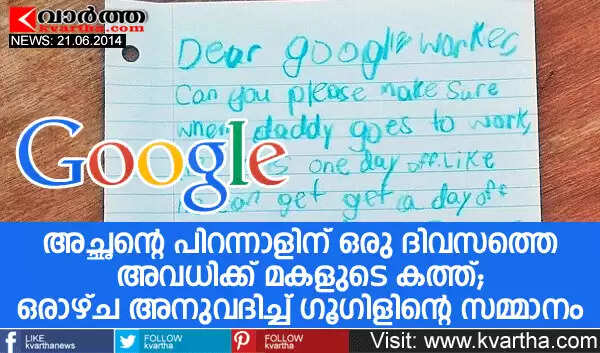 കെവാർത്ത
kvartha.com
NEWS: 21.06.2014
Dear google worker,
Can you please make sure
when daddy goes to work,
one day off. Like
can get get a day off
Google
അച്ഛന്റെ പിറന്നാളിന് ഒരു ദിവസത്തെ
അവധിക്ക് മകളുടെ കത്ത്;
ഒരാഴ്ച അനുവദിച്ച് ഗൂഗിളിന്റെ സമ്മാനം
LIKE
kvarthanews
FOLLOW
kvartha
FOLLOW
kvartha
Visit: www.kvartha.com